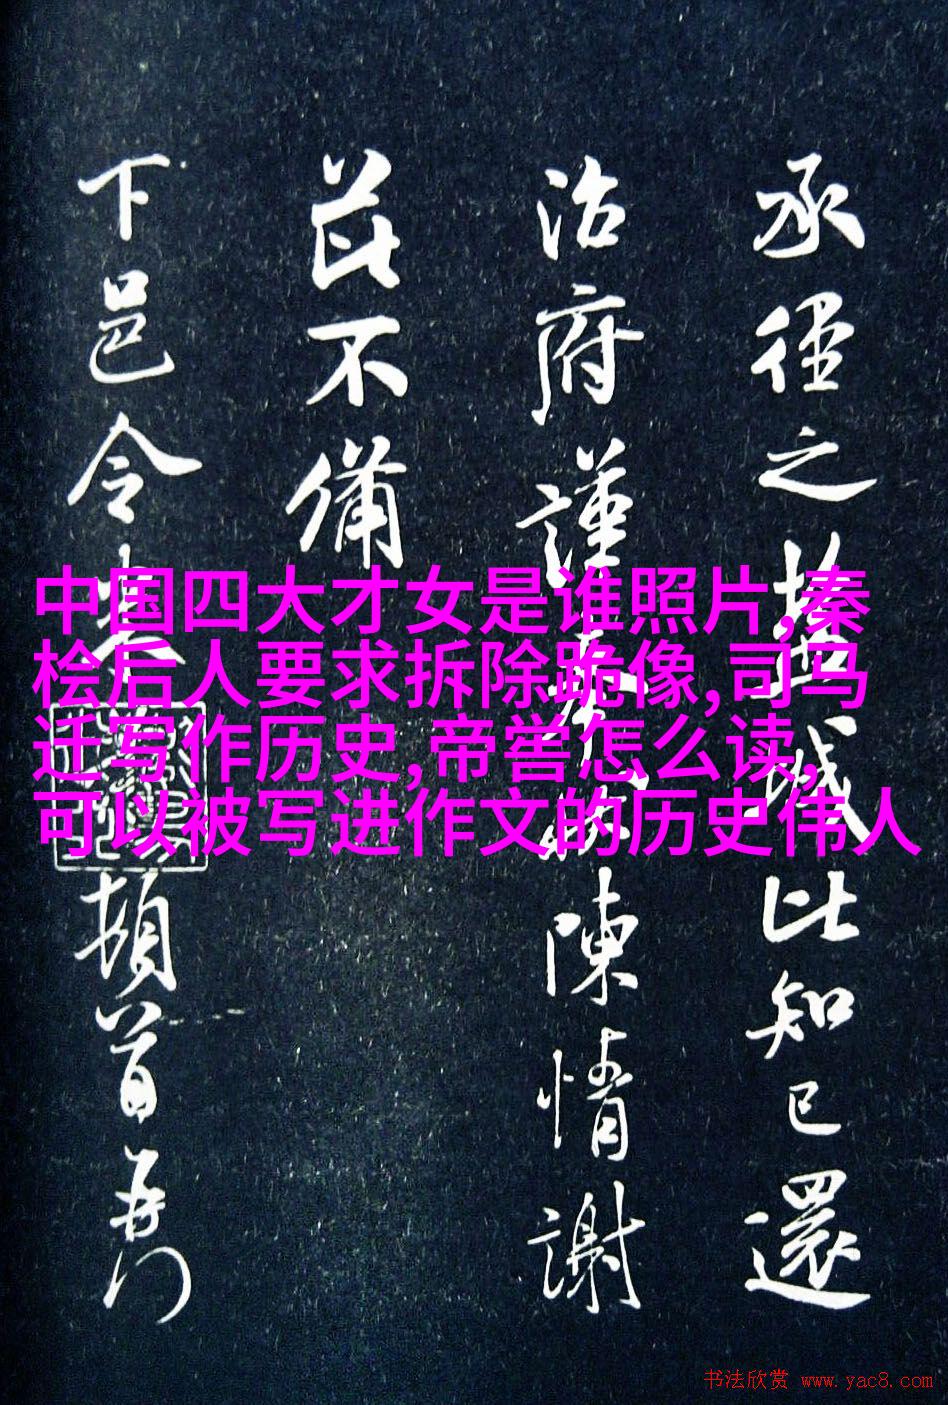 承径之盐城比知己還
治府謹奉啟陳情謝
茲不備
下邑令裴
頓首再
中国四大才女是谁照片,秦
桧后人要求拆除跪像,司马
迁写作历史,帝喾怎么读,
可以被写进作文的历史伟人
书法欣赏 www.yac8.com